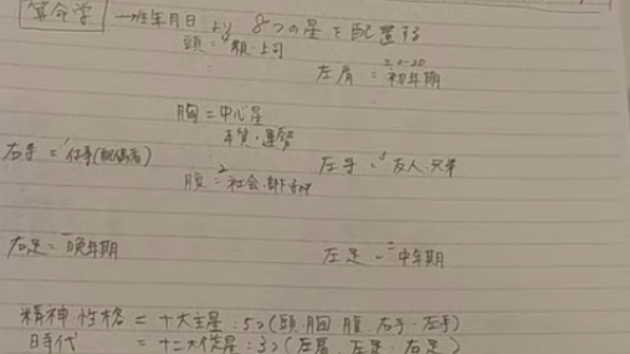 算命学 生年月日より 8つの星を配置する
頭=親・上司
左肩=初年期
胸=中心星
運勢
右手=仕事(配偶者)
左手=友人・兄弟
腹=社会・部下
右足=晩年期
左足=中年期
精神・性格=十大主星:5つ(頭・胸・腹・右手・左手)
時代=十二大従星:3つ(左肩、左足・右足)